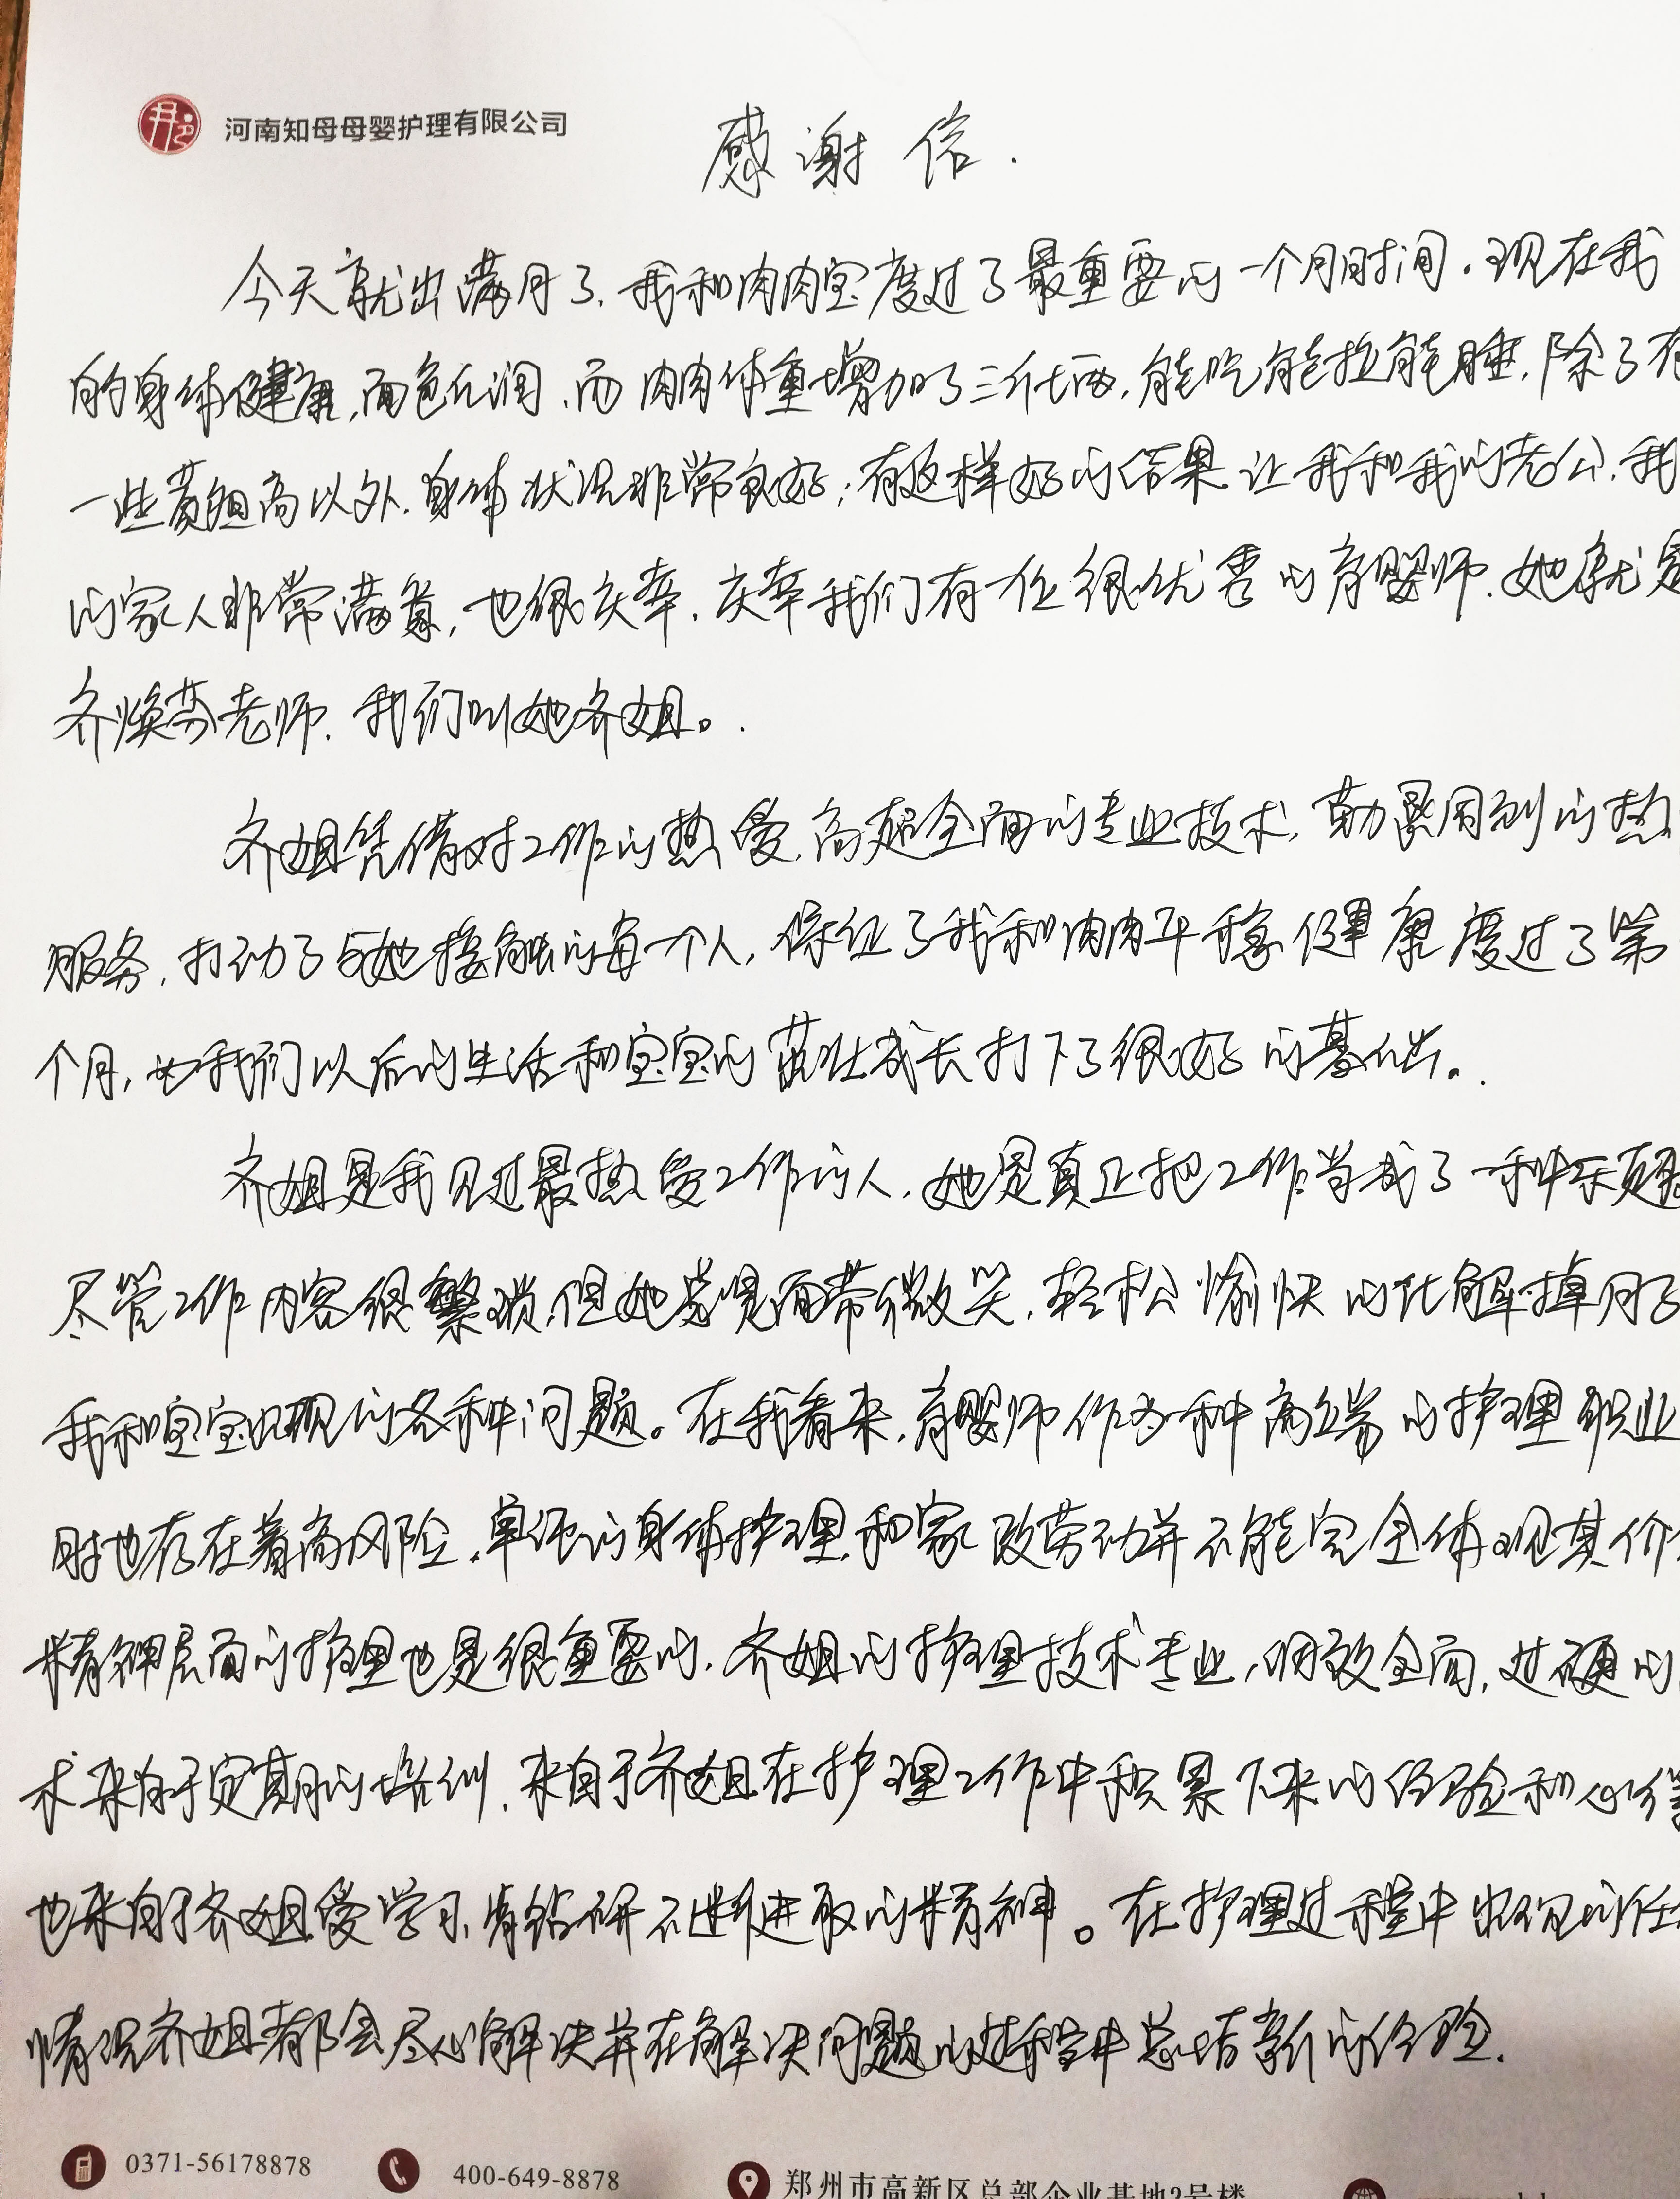 河南知母母婴护理有限公司
感谢信.
今天就出满月了,我和肉肉宝度过了最重要的一个月时间.现在我
的身体健康,面色红润.而肉肉体重增加了三斤七两,能吃能拉能睡.除了有
一些黄疸高以外.身体状况非常良好;有这样好的结果.让我和我的老公.我
的家人非常满意,也很庆幸.庆幸我们有一位很优秀的育婴师.她就是
齐焕芬老师.我们叫她齐姐。.
齐姐凭借对工作的热爱,高超全面的专业技术,勤恳周到的热
服务.打动了与她接触的每一个人,保证了我和肉肉平稳健康度过了第
个月,为我们以后的生活和宝宝的茁壮成长打下了很好的基础。.
齐姐是我见过最热爱工作的人.她是真正把工作当成了一种乐趣
尽管工作内容很繁琐,但她总是面带微笑.轻松愉快的化解掉月子
我和宝宝出现的各种问题。在我看来,育婴师作为一种高端的护理职业
时也存在着高风险.单纯的身体护理.和家政劳动并不能完全体现其价
精神层面的护理也是很重要的.齐姐的护理技术专业,细致全面,过硬的
术来自于定期的培训.来自于齐姐在护理工作中积累下来的经验和心得
也来自于齐姐爱学习,肯钻研不断进取的精神。在护理过程中出现的任
情况齐姐都会尽心解决并在解决问题的过程中总结新的经验.
0371-56178878 400-649-8878 郑州市高新区总部企业基地2号楼